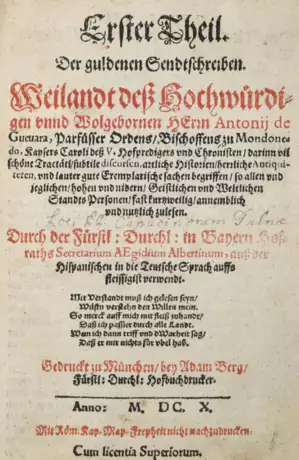 Erster Theil.
Der guldenen Sendtschreiben.
Weilandt deß Hochwürdi-
gen vnnd Wolgebornen HErrn Antonij de
Gueuara, Parfüsser Ordens, Bischoffens zu Mondone-
do, Kaysers Caroli deß V. Hofpredigers vnd Chronisten, darinn vil
schöne Tractätl, subtile discursen, artliche Historien, herrliche Antiqui-
teten, vnd lauter gute Exemplarische sachen begriffen, so allen vnd
jeglichen, hohen vnd nidern, Geistlichen vnd Weltlichen
Standts Personen, fast kurtzweilig, annemblich
vnd nutzlich zulesen.
Loci Capucinorum
Durch der Fürstl: Durchl: in Bayern Hof-
raths Secretarium AEgidium Albertinum, auß der
Hispanischen in die Teutsche Sprach auffs
fleissigist verwendt.
Mit Verstandt muß ich gelesen seyn,
Wilstu verstehn den Willen mein.
So merck auff mich mit fleiß zuhandt,
Daß ich passier durch alle Landt.
Wan ich dann triff vnd Warheit sag,
Daß er mir nichts für vbel hab.
Gedruckt zu München, bey Adam Berg,
Fürstl: Durchl: Hofbuchdrucker.
Anno: M. DC. X.
Mit Röm. Kay. May. Freyheit nicht nachzudrucken,
Cum licentia Superiorum.